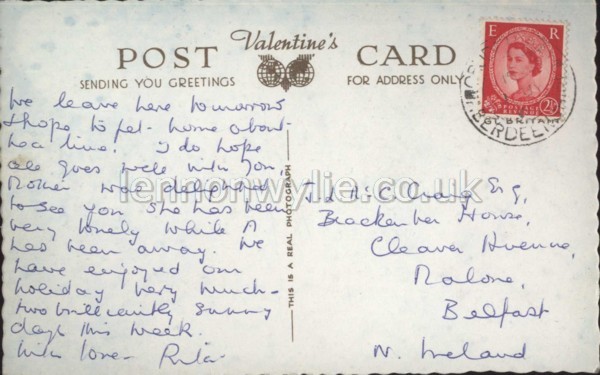 POST Valentine's CARD
SENDING YOU GREETINGS
FOR ADDRESS ONLY
E R
2½
ABERDEEN
We leave here tomorrow
& hope to get home about
tea time. I do hope
all goes well with you.
Mother was delighted
to see you she has been
very lonely while A
has been away. We
have enjoyed our
holiday very much -
two brilliantly sunny
days this week.
With love - Rita -
THIS IS A REAL PHOTOGRAPH
J. d McC. Craig Esq,
Brackenber House,
Cleaver Avenue,
Malone,
Belfast
N. Ireland
lennonwylie.co.uk